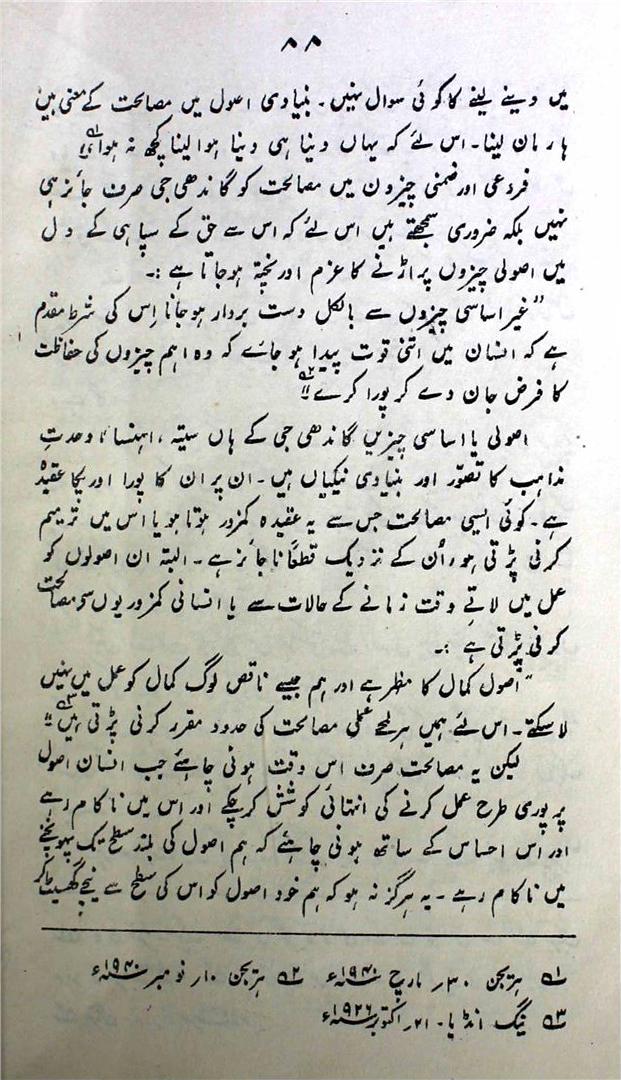 ۸۸
میں دینے لینے کا کوئی سوال نہیں۔ بنیادی اصول میں مصالحت کے معنی ہیں
ہار مان لینا۔ اس لئے کہ یہاں دینا ہی دینا ہوا لینا کچھ نہ ہوا"؎۱
فروعی اور ضمنی چیزوں میں مصالحت کو گاندھی جی صرف جائز ہی
نہیں بلکہ ضروری سمجھتے ہیں اس لئے کہ اس سے حق کے سپاہی کے دل
میں اصولی چیزوں پر اڑنے کا عزم اور پختہ ہو جاتا ہے :۔
"غیر اساسی چیزوں سے بالکل دست بردار ہو جانا اِس کی شرط مقدم
ہے کہ انسان میں اتنی قوت پیدا ہو جائے کہ وہ اہم چیزوں کی حفاظت
کا فرض جان دے کر پورا کرے"؎۲
اصولی یا اساسی چیزیں گاندھی جی کے ہاں ستیہ ، اہنسا ، وحدتِ
مذاہب کا تصوّر اور بنیادی نیکیاں ہیں۔ ان پر ان کا پورا اور پکا عقیدہ
ہے۔ کوئی ایسی مصالحت جس سے یہ عقیدہ کمزور ہوتا ہو یا اس میں ترمیم
کرنی پڑتی ہو، اُن کے نزدیک قطعًا ناجائز ہے۔ البتہ ان اصولوں کو
عمل میں لاتے وقت زمانے کے حالات سے یا انسانی کمزوریوں سے مصالحت
کرنی پڑتی ہے :۔
"اُصول کمال کا مظہر ہے اور ہم جیسے ناقص لوگ کمال کو عمل میں نہیں
لا سکتے۔ اس لئے ہمیں ہر لمحے عملی مصالحت کی حدود مقرر کرنی پڑتی ہیں"؎۳
لیکن یہ مصالحت صرف اس وقت ہونی چاہئے جب انسان اصول
پر پوری طرح عمل کرنے کی انتہائی کوشش کر چکے اور اس میں ناکام رہے
اور اس احساس کے ساتھ ہونی چاہئے کہ ہم اصول کی بلند سطح تک پہونچنے
میں ناکام رہے۔ یہ ہرگز نہ ہو کہ ہم خود اصول کو اس کی سطح سے نیچے گھسیٹ کر
؎۱ ہریجن ۳۰؍ مارچ ۱۹۴۰ء ؎۲ ہریجن ۱۰؍ نومبر ۱۹۴۰ء
؎۳ ینگ انڈیا۔ ۲۱؍ اکتوبر ۱۹۲۶ء